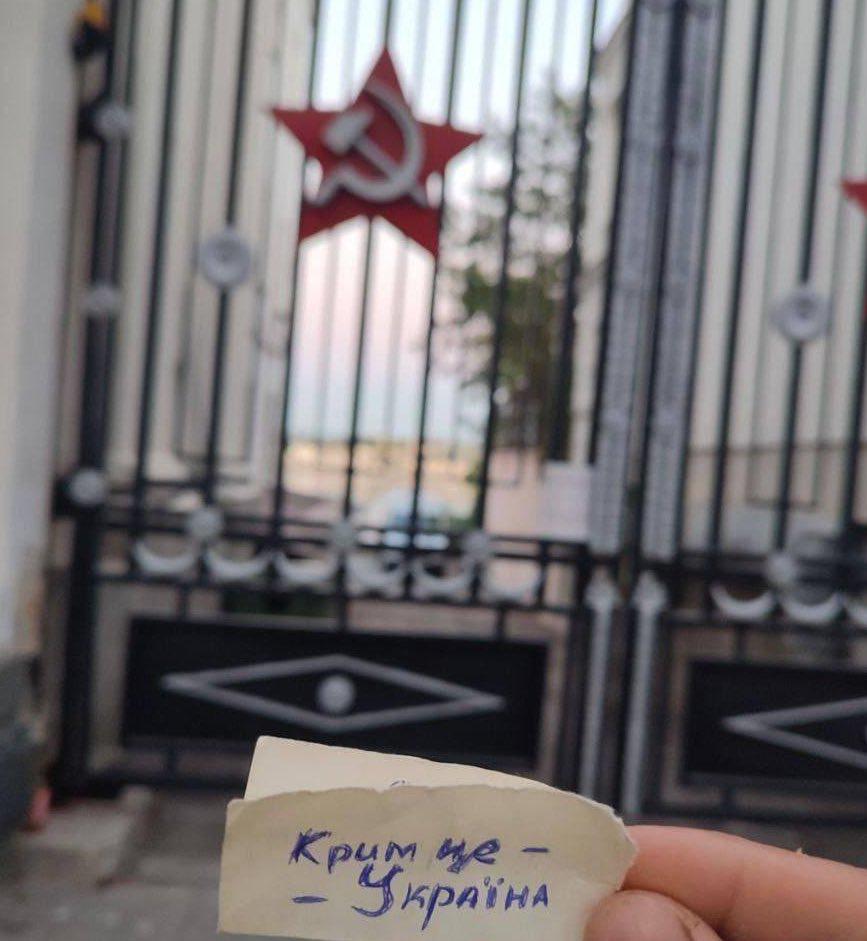 Крим це -
- Україна